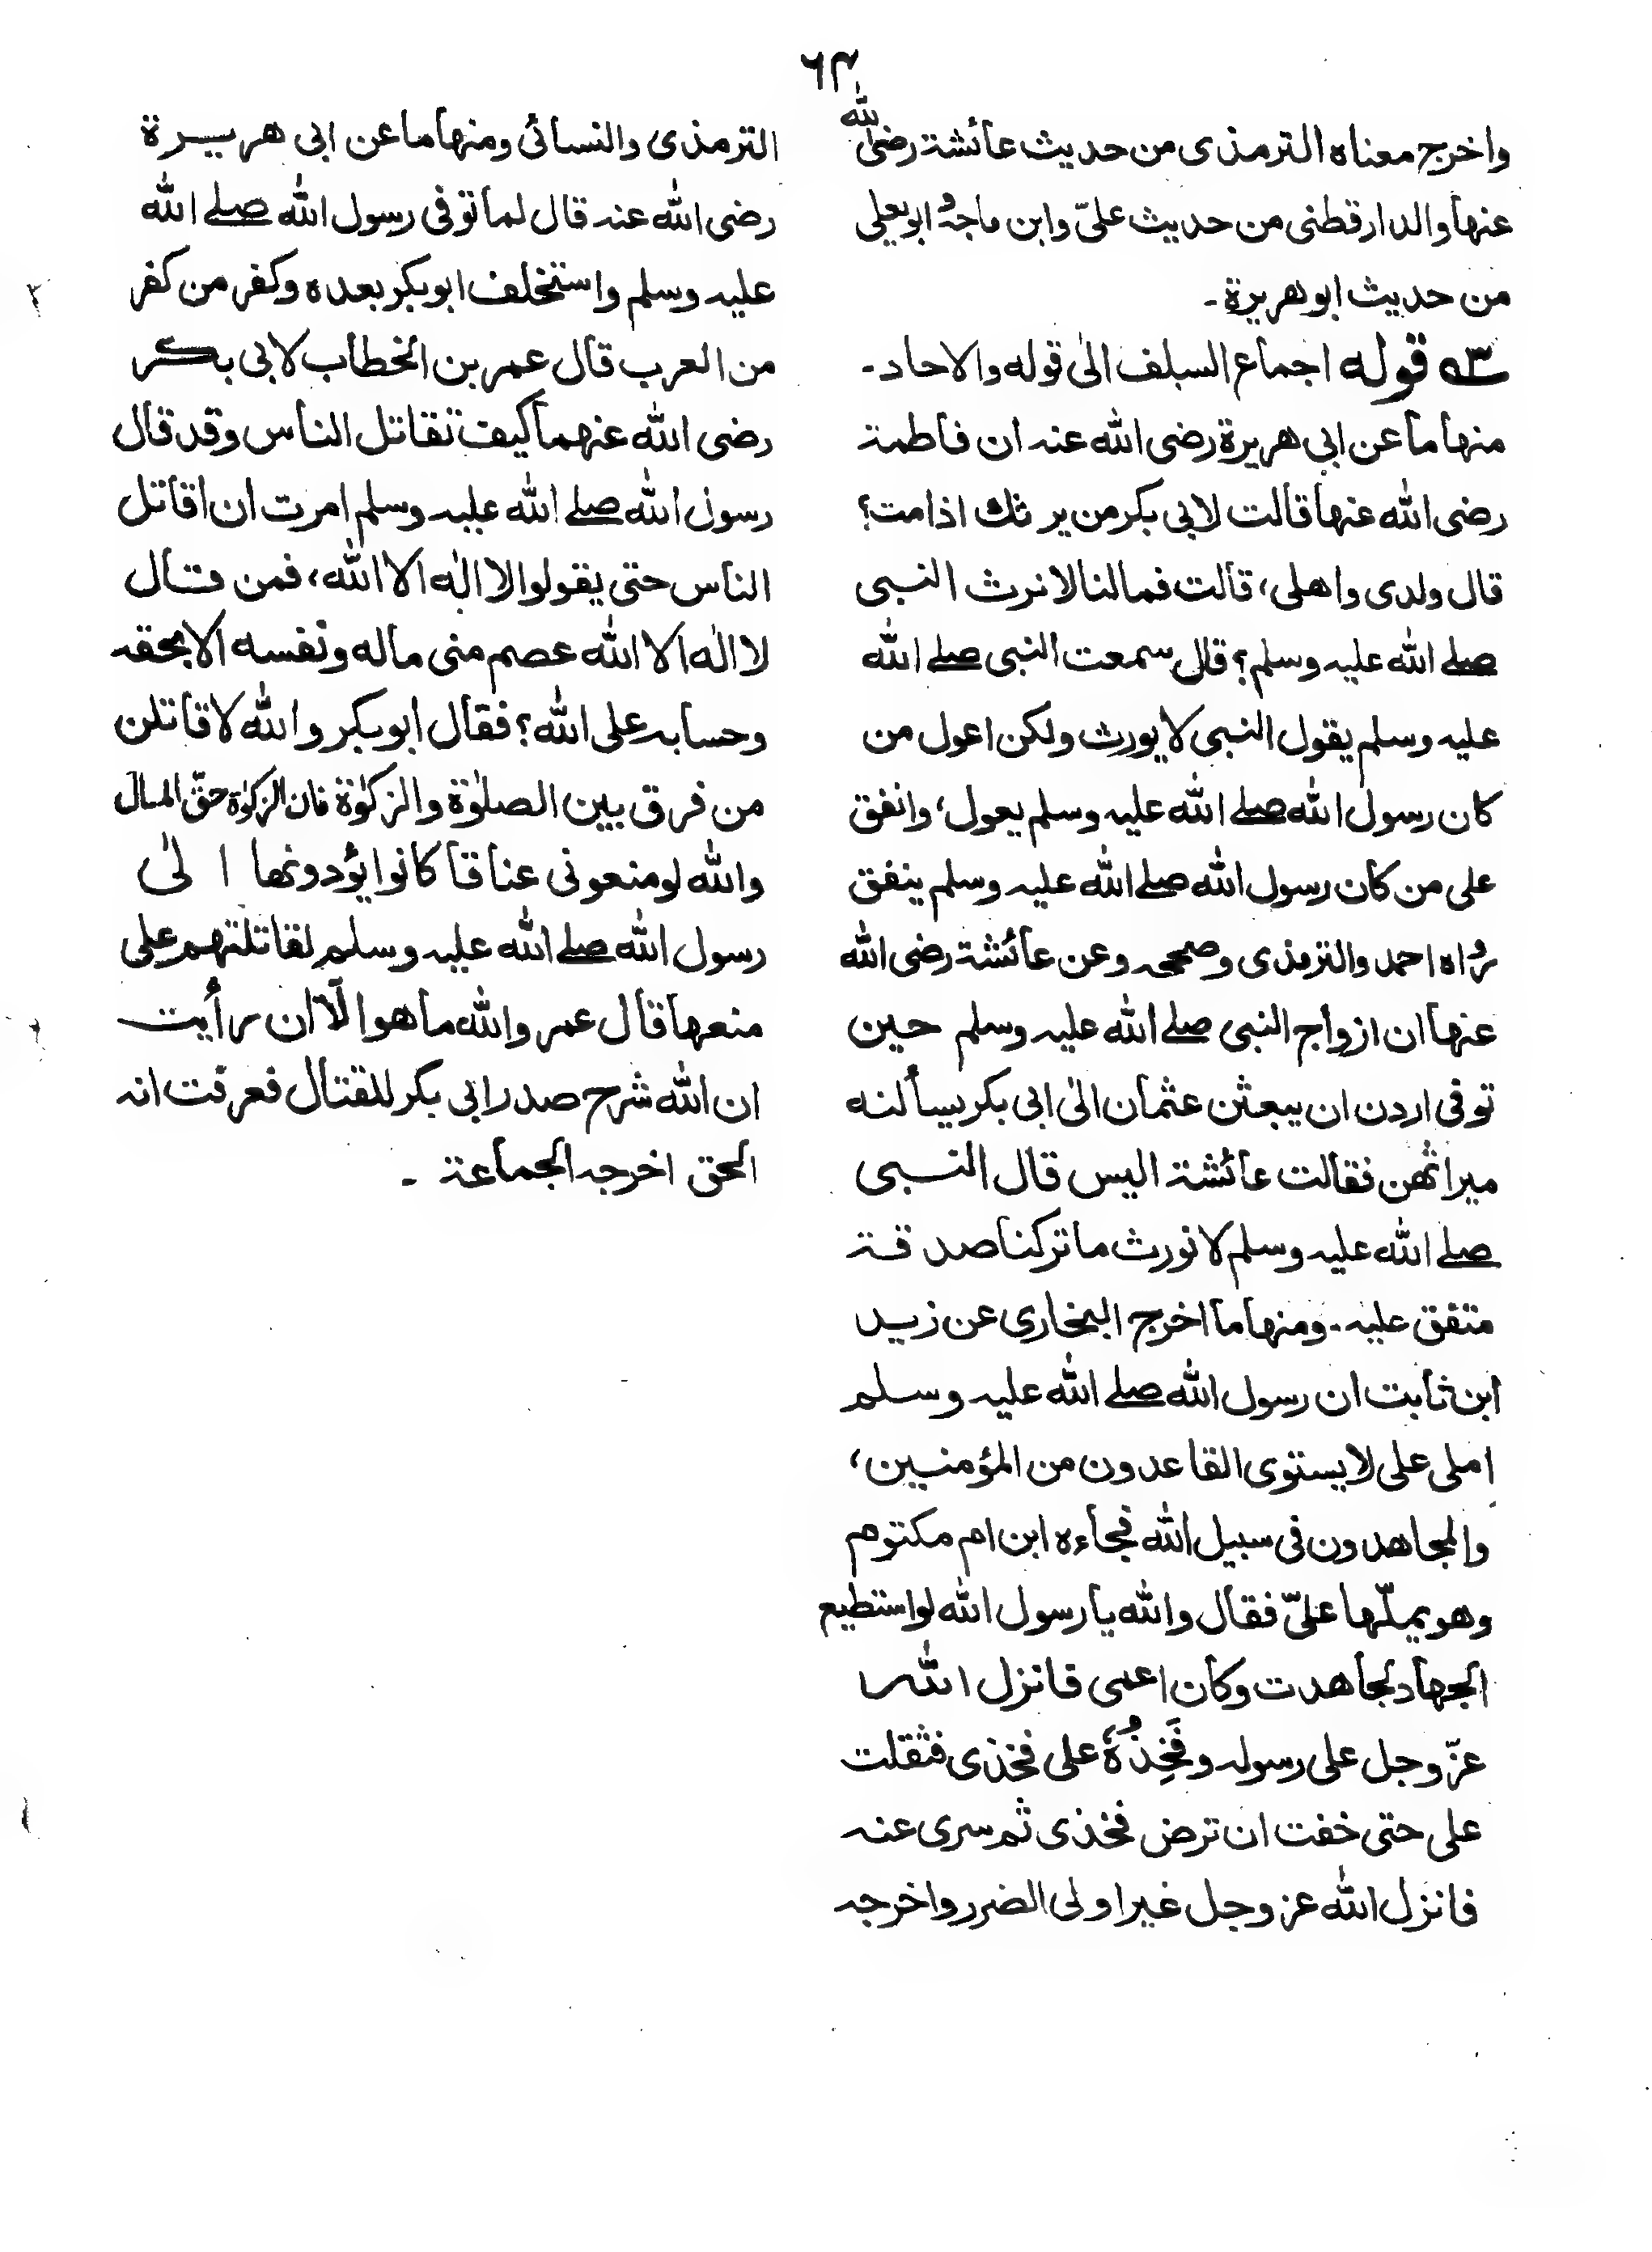 ٦٣
واخرج معناه الترمذى من حديث عائشة رضى الله
عنها والدارقطنى من حديث علىّ وابن ماجه وابويعلى
من حديث ابوهريرة ـ
٥٣ قوله اجماع السلف الىٰ قوله والاحاد ـ
منها ما عن ابي هريرة رضى الله عنه ان فاطمة
رضى الله عنها قالت لابى بكر من يرثك اذا مت؟
قال ولدى واهلى، قالت فمالنا لا نرث النبى
صلے الله عليه وسلم؟ قال سمعت النبى صلے الله
عليه وسلم يقول النبى لا يورث ولكن اعول من
كان رسول الله صلے الله عليه وسلم يعول، وانفق
على من كان رسول الله صلے الله عليه وسلم ينفق
رواه احمد والترمذى وصححه وعن عائشة رضى الله
عنها ان ازواج النبى صلے الله عليه وسلم حين
توفى اردن ان يبعثن عثمان الىٰ ابى بكر يسألنه
ميراثهن فقالت عائشة اليس قال النبى
صلے الله عليه وسلم لا نورث ما تركنا صدقة
متفق عليه ـ ومنها ما اخرج البخارى عن زيد
ابن ثابت ان رسول الله صلے الله عليه وسلم
املى على لا يستوى القاعدون من المؤمنين،
والمجاهدون فى سبيل الله فجاءه ابن ام مكتوم
وهو يملّها علىّ فقال والله يا رسول الله لو استطيع
الجهاد لجاهدت وكان اعمى فانزل الله
عزّ وجل على رسوله وفَخِذُهٗ على فخذى فثقلت
على حتى خفت ان ترض فخذى ثم سرى عنه
فانزل الله عز وجل غير اولى الضرر واخرجه
الترمذى والنسائى ومنها ما عن ابى هريرة
رضى الله عنه قال لما توفى رسول الله صلے الله
عليه وسلم واستخلف ابوبكر بعده وكفر من كفر
من العرب قال عمر بن الخطاب لابى بكر
رضى الله عنهما كيف تقاتل الناس وقد قال
رسول الله صلے الله عليه وسلم امرت ان اقاتل
الناس حتى يقولوا لا الٰه الا الله، فمن قال
لا الٰه الا الله عصم منى ماله ونفسه الا بحقه
وحسابه على الله؟ فقال ابوبكر والله لاقاتلن
من فرق بين الصلوٰة والزكوٰة فان الزكوٰة حقّ المال
والله لو منعونى عناقا كانوا يؤدونها الىٰ
رسول الله صلے الله عليه وسلم لقاتلتهم على
منعها قال عمر والله ما هو الّا ان رأيت
ان الله شرح صدر ابى بكر للقتال فعرفت انه
الحق اخرجه الجماعة ـ